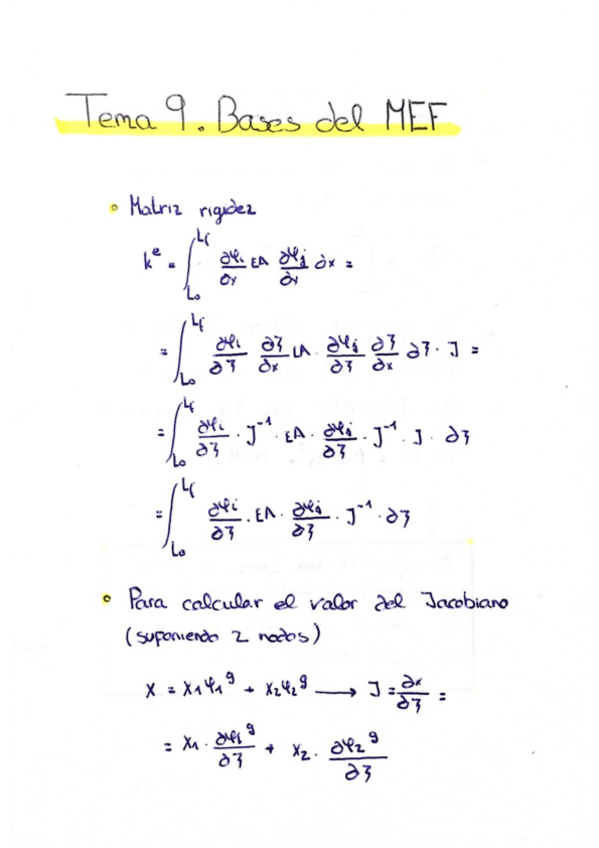 Tema 9. Bases del MEF
• Matriz rigidez
k^e = ∫_{L₀}^{L_f} ∂φᵢ/∂x EA ∂φⱼ/∂x ∂x =
= ∫_{L₀}^{L_f} ∂φᵢ/∂ξ ∂ξ/∂x EA · ∂φⱼ/∂ξ ∂ξ/∂x ∂ξ · J =
= ∫_{L₀}^{L_f} ∂φᵢ/∂ξ · J⁻¹ · EA · ∂φⱼ/∂ξ · J⁻¹ · J · ∂ξ
= ∫_{L₀}^{L_f} ∂φᵢ/∂ξ · EA · ∂φⱼ/∂ξ · J⁻¹ · ∂ξ
• Para calcular el valor del Jacobiano
(suponiendo 2 nodos)
x = x₁φ₁^g + x₂φ₂^g → J = ∂x/∂ξ =
= x₁ · ∂φ₁^g/∂ξ + x₂ · ∂φ₂^g/∂ξ